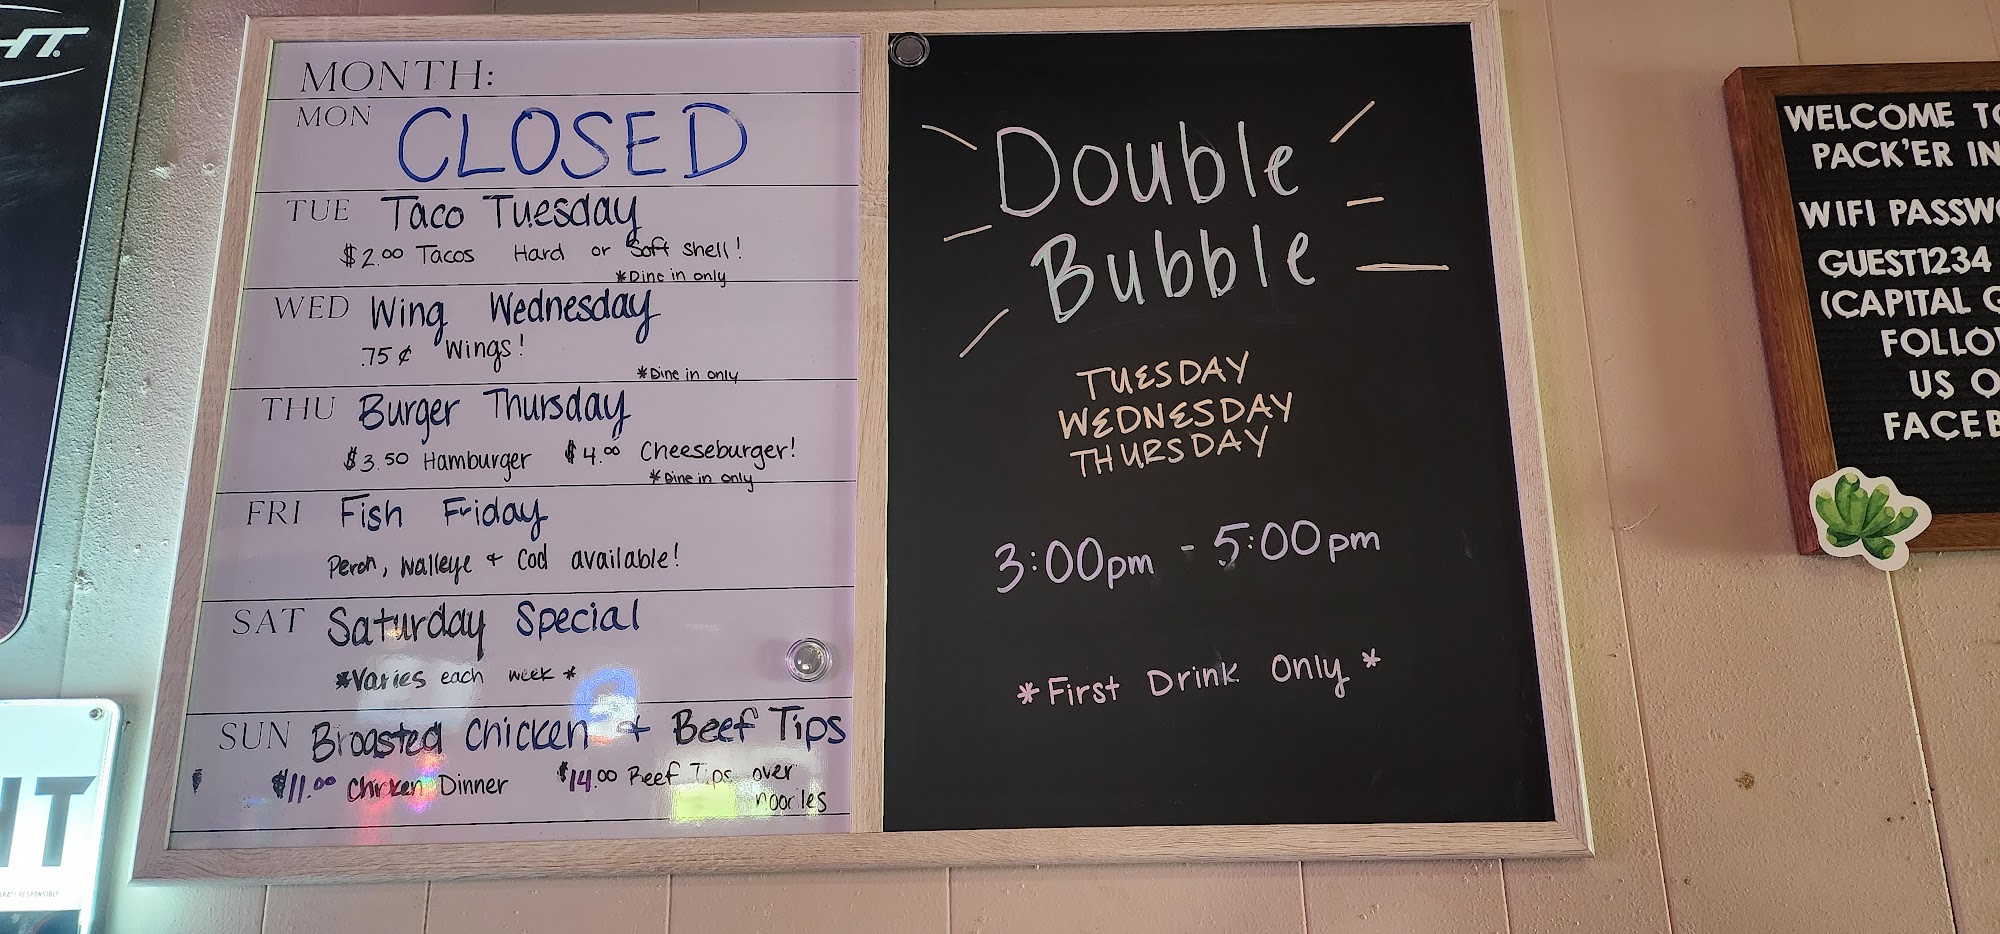 HT®
MONTH:
MON CLOSED
TUE Taco Tuesday
$2.00 Tacos Hard or Soft shell!
*Dine in only
WED Wing Wednesday
.75¢ Wings!
*Dine in only
THU Burger Thursday
$3.50 Hamburger $4.00 Cheeseburger!
*Dine in only
FRI Fish Friday
Perch, Walleye + Cod available!
SAT Saturday Special
*Varies each week*
SUN Broasted Chicken + Beef Tips
$11.00 Chicken Dinner $14.00 Beef Tips over
noodles
Double
Bubble
TUESDAY
WEDNESDAY
THURSDAY
3:00pm - 5:00pm
*First Drink Only*
WELCOME TO
PACK'ER IN
WIFI PASSWO
GUEST1234
(CAPITAL G
FOLLO
US O
FACEB
RESPONSIBLY